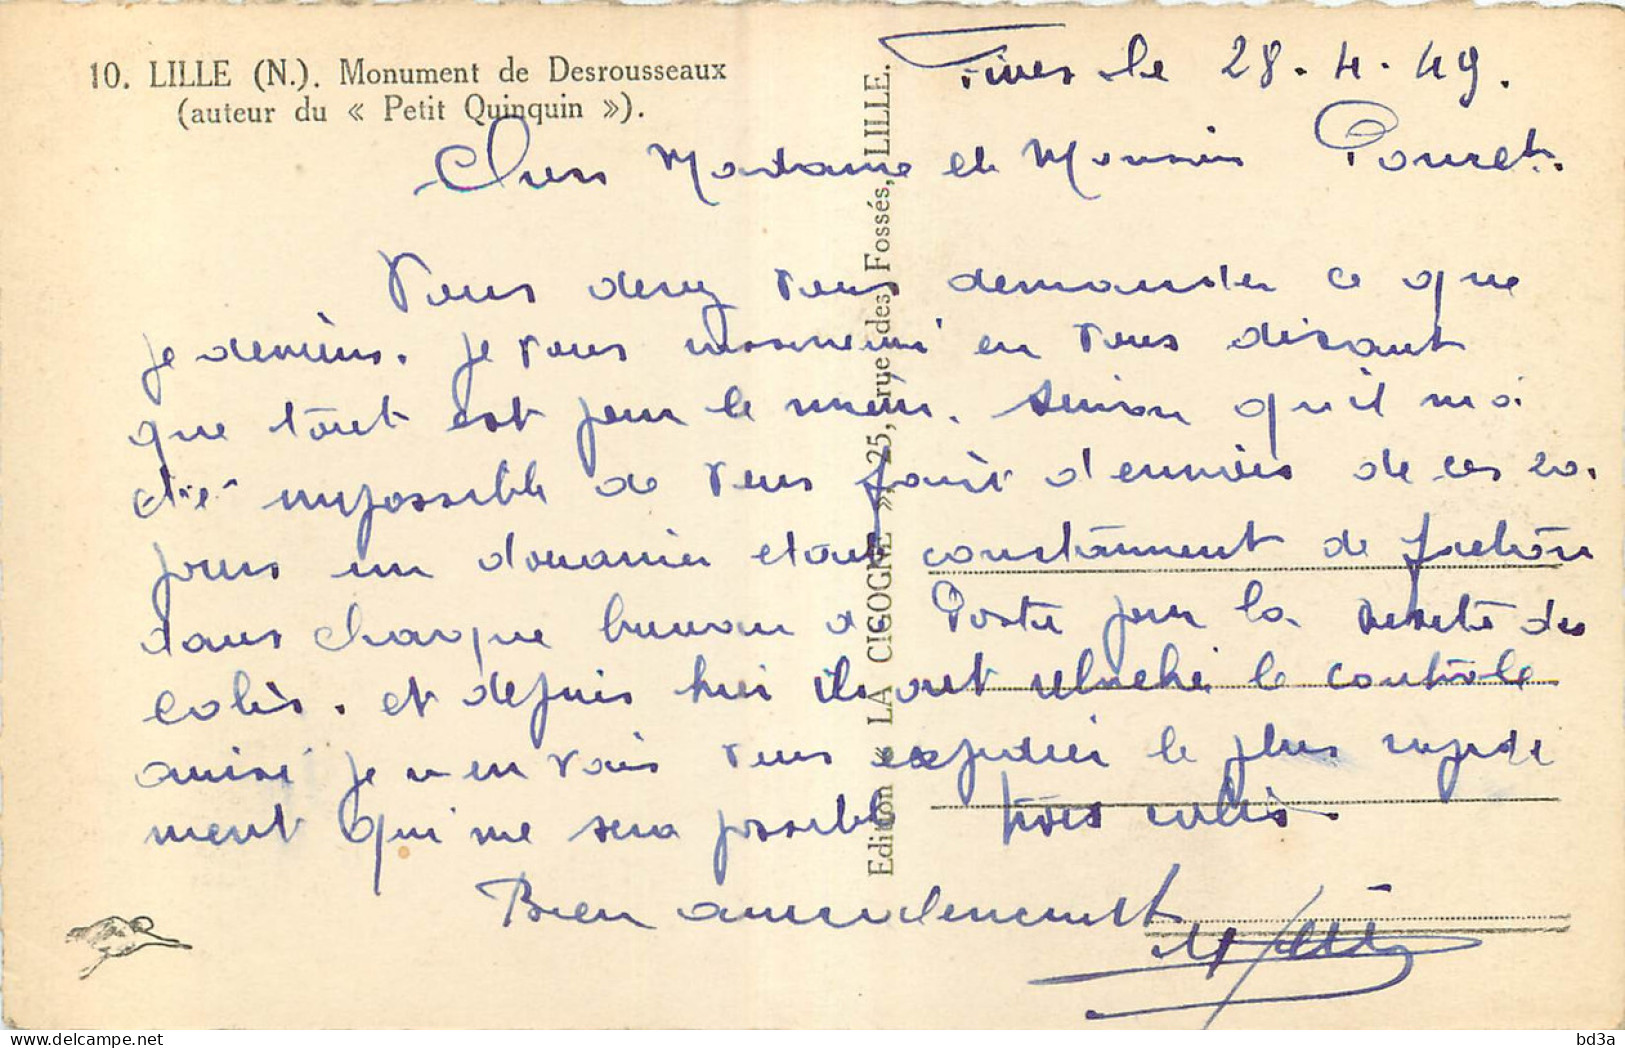 10. LILLE (N.). Monument de Desrousseaux
(auteur du « Petit Quinquin »).
Edition « LA CIGOGNE », 25, rue des Fossés, LILLE.
Fives le 28.4.49.
Chers Madame et Monsieur Pouret.
Vous devez vous demander ce que
je deviens. je vous en vous disant
que tout est pour le mieu. sinon qu'il m'a
été impossible de vous faire d'envois de ces 20.
jours un douanier etant constamment de faction
dans chaque bureau de Poste pour la des
colis. et depuis hier ils ont relaché le contrôle
aussi je m'en vais vous expedier le plus rapide
ment qui me sera possible trois colis.
Bien